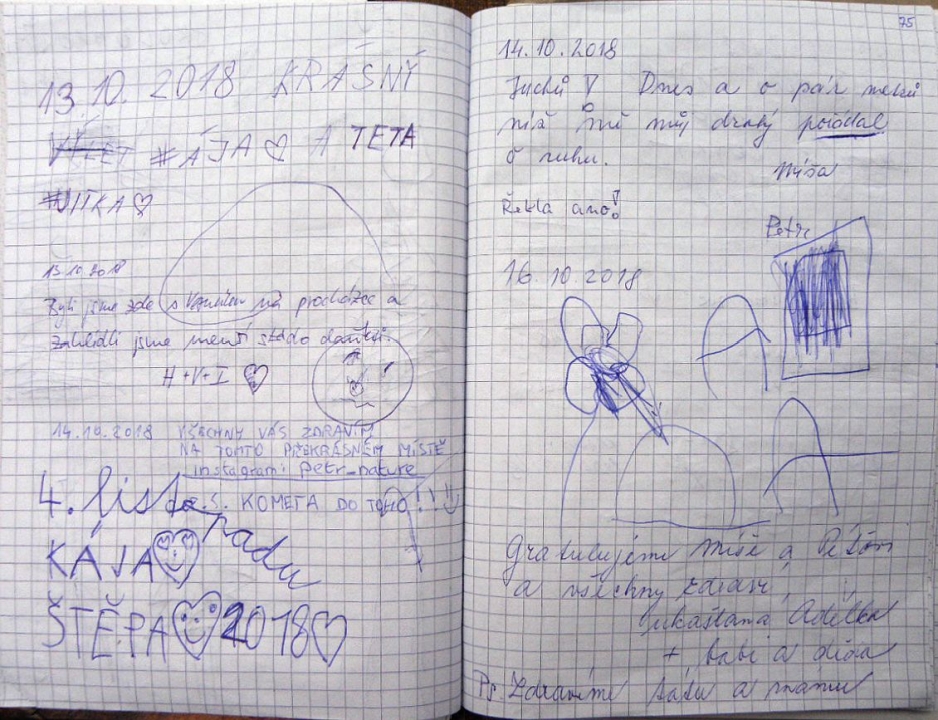 13.10. 2018 KRÁSNÝ
VÝLET #ÁJA A TETA
#JITKA
13.10.2018
Byli jsme zde s na procházce a
zahlídli jsme menší stádo daňků.
H+V+I
14.10.2018 VŠECHNY VÁS ZDRAVÍM
NA TOMTO PŘEKRÁSNÉM MÍSTĚ
instagram: petr_nature
P.S. KOMETA DO TOHO!!!
4. listopadu
KÁJA
ŠTĚPA 2018
75
14.10.2018
Juchů! Dnes a o pár metrů
níž mě můj drahý požádal
o ruku.
Míša
Řekla ano!
Petr
16.10.2018
Gratulujeme Míše a Péťovi
a všechny zdraví
Adélka
+ babi a děda
Ps. Zdravíme tátu a mamu